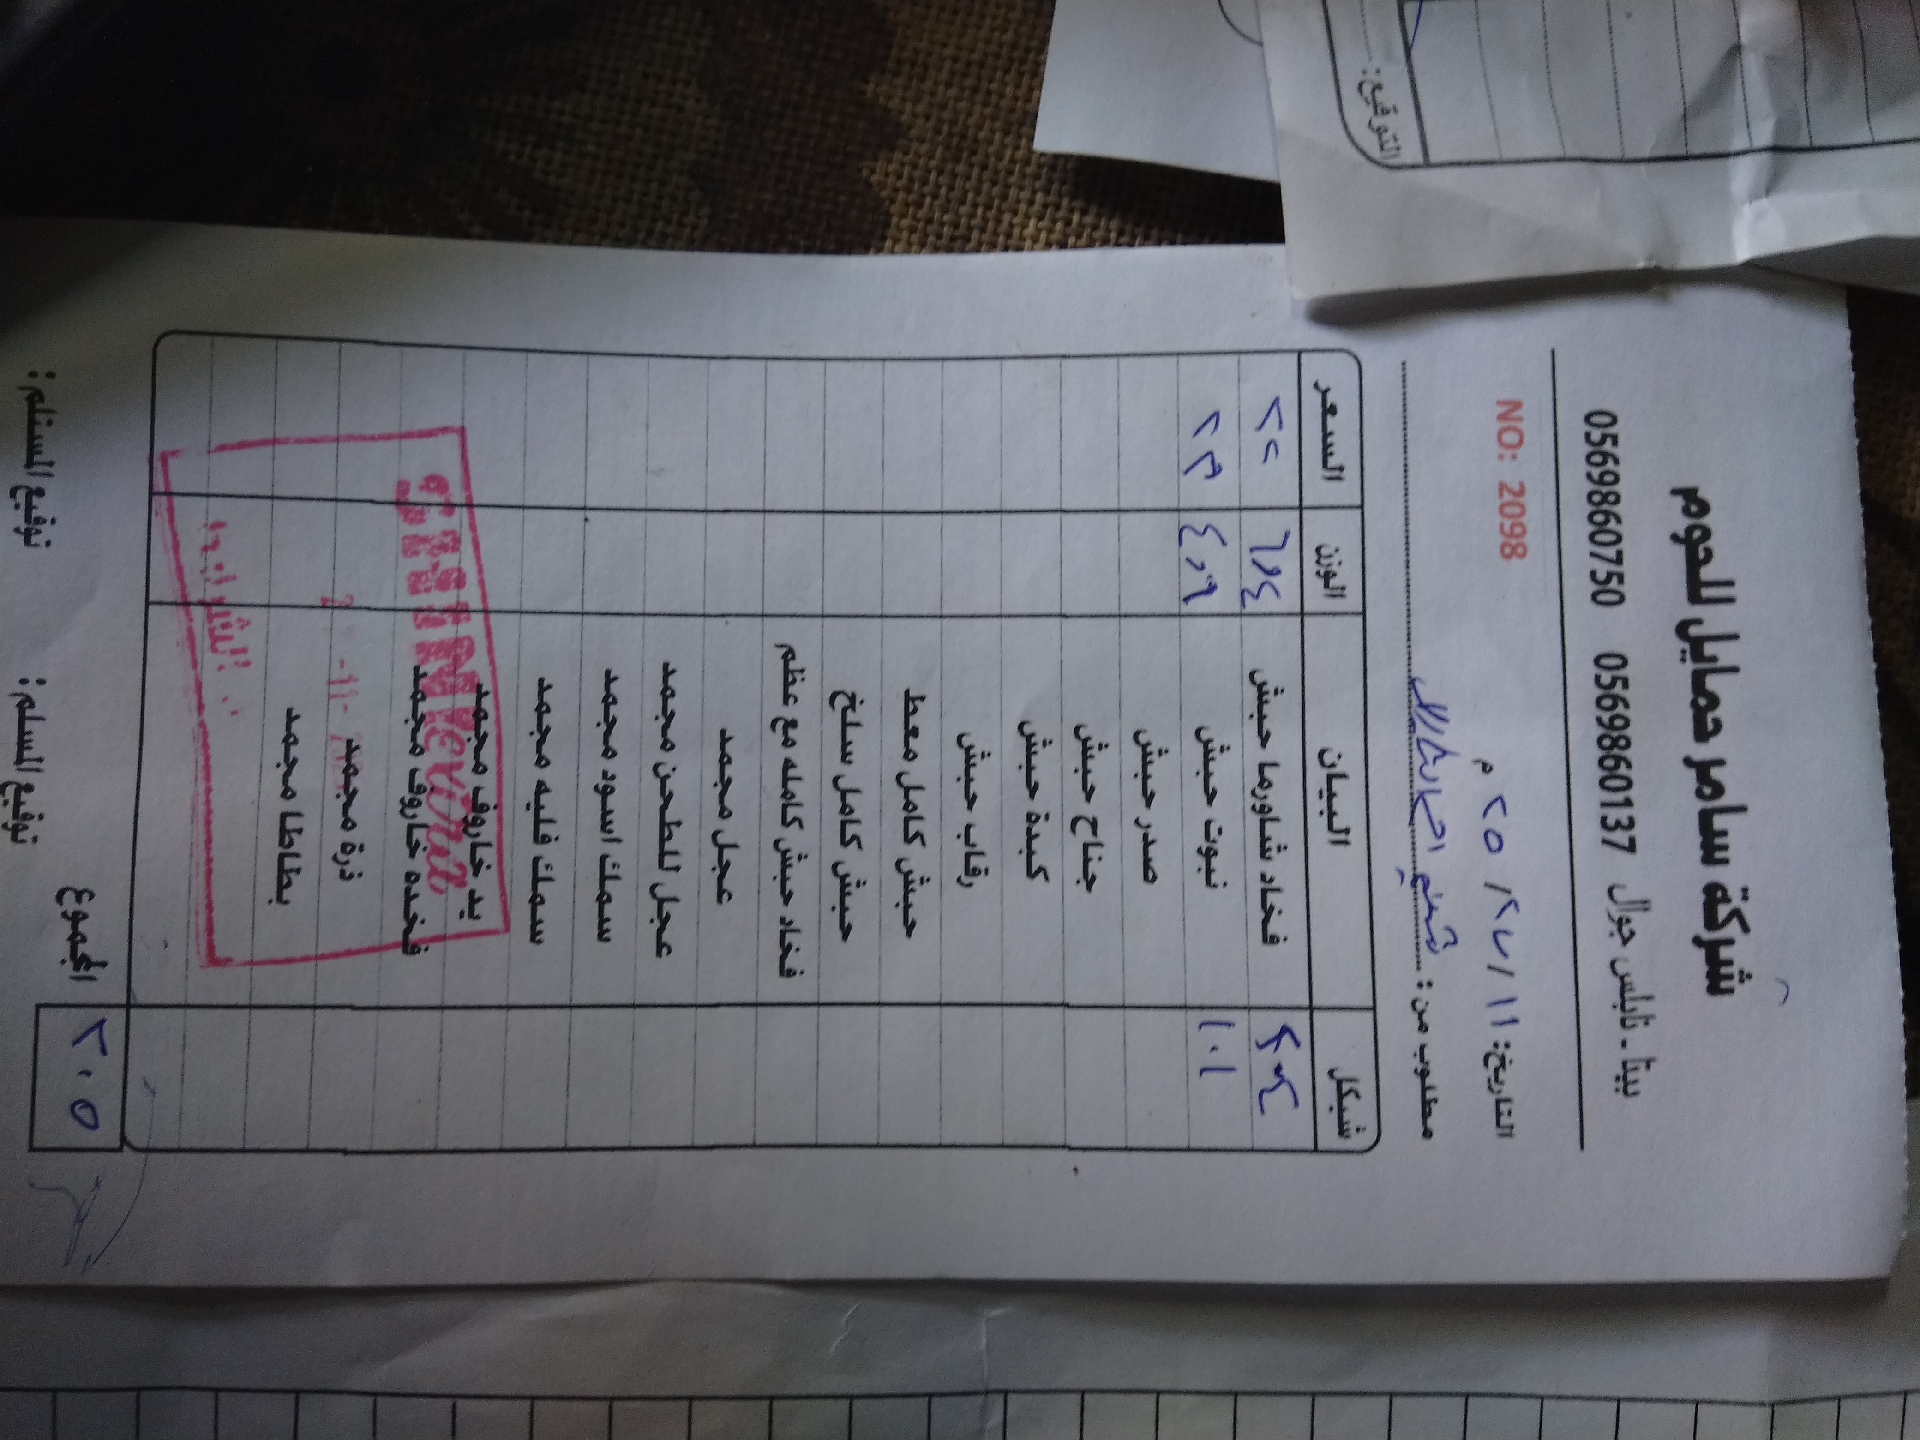 شركة سامر حمايل للحوم
بيتا - نابلس جوال 0569860137 0569860750
التاريخ: ١١ / ٢٧ / ٢٥ م NO: 2098
مطلوب من :
شيكل البيان الوزن السعر
فخاد شاورما حبش ٢٢
١٠١ نبوت حبش ٤,٩ ٢٣
صدر حبش
جناح حبش
كبدة حبش
رقاب حبش
حبش كامل معط
حبش كامل سلخ
فخاد حبش كامله مع عظم
عجل مجمد
عجل للطحن مجمد
سمك اسود مجمد
سمك فليه مجمد
يد خاروف مجمد
فخده خاروف مجمد
ذرة مجمد
بطاطا مجمد
٢٠٥ المجموع
توقيع المسلم : توقيع المستلم :
التوقيع: